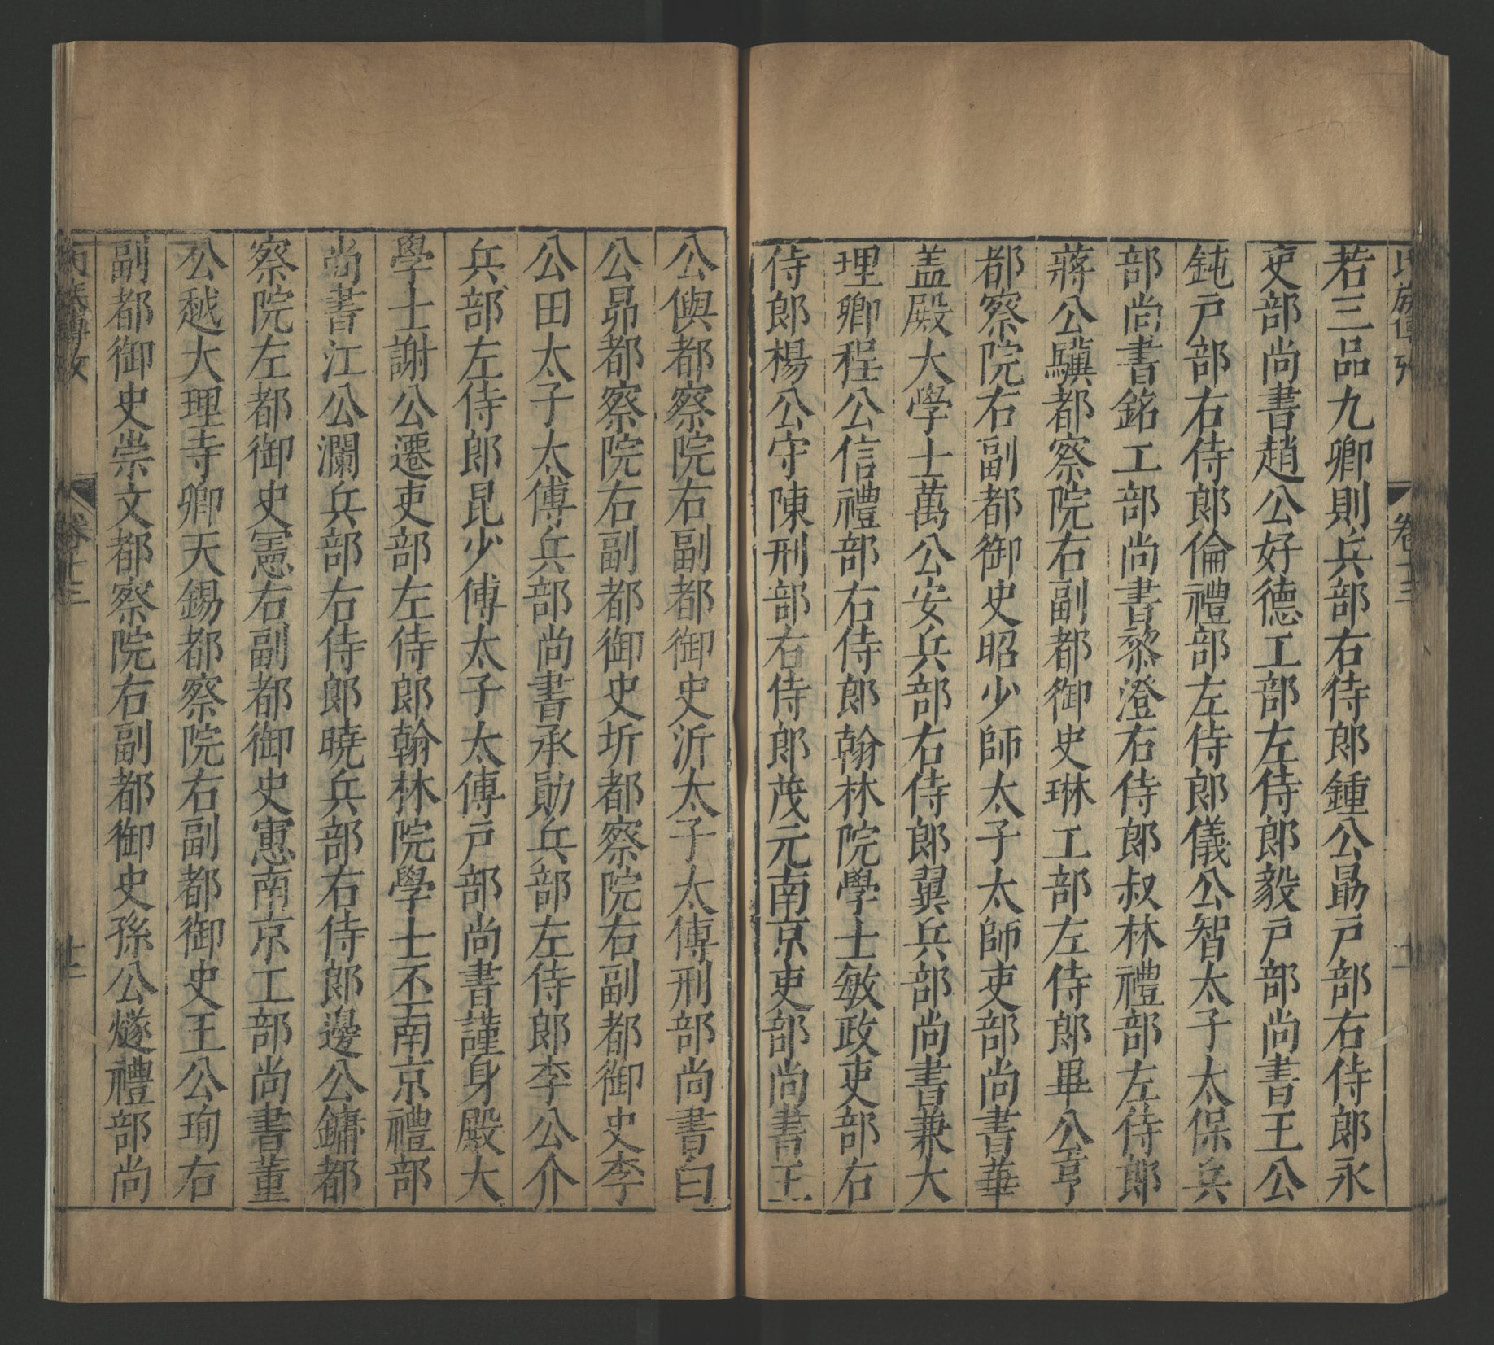 若三品九卿則兵部右侍郎鍾公勗戸部右侍郎永
吏部尚書趙公好德工部左侍郎毅戸部尚書王公
鈍戸部右侍郎倫禮部左侍郎儀公智太子太保兵
部尚書銘工部尚書黎澄右侍郎叔林禮部左侍郎
蔣公驥都察院右副都御史琳工部左侍郎畢公亨
都察院右副都御史昭少師太子太師吏部尚書華
蓋殿大學士萬公安兵部右侍郎翼兵部尚書兼大
理卿程公信禮部右侍郎翰林院學士敏政吏部右
侍郎楊公守陳刑部右侍郎茂元南京吏部尚書王
公㒜都察院右副都御史沂太子太傅刑部尚書白
公昂都察院右副都御史圻都察院右副都御史李
公田太子太傅兵部尚書承勛兵部左侍郎李公介
兵部左侍郎昆少傅太子太傅戸部尚書謹身殿大
學士謝公遷吏部左侍郎翰林院學士丕南京禮部
尚書江公瀾兵部右侍郎曉兵部右侍郎邊公鏞都
察院左都御史憲右副都御史寭南京工部尚書董
公越大理寺卿天錫都察院右副都御史王公珣右
副都御史崇文都察院右副都御史孫公燧禮部尚
卷十三